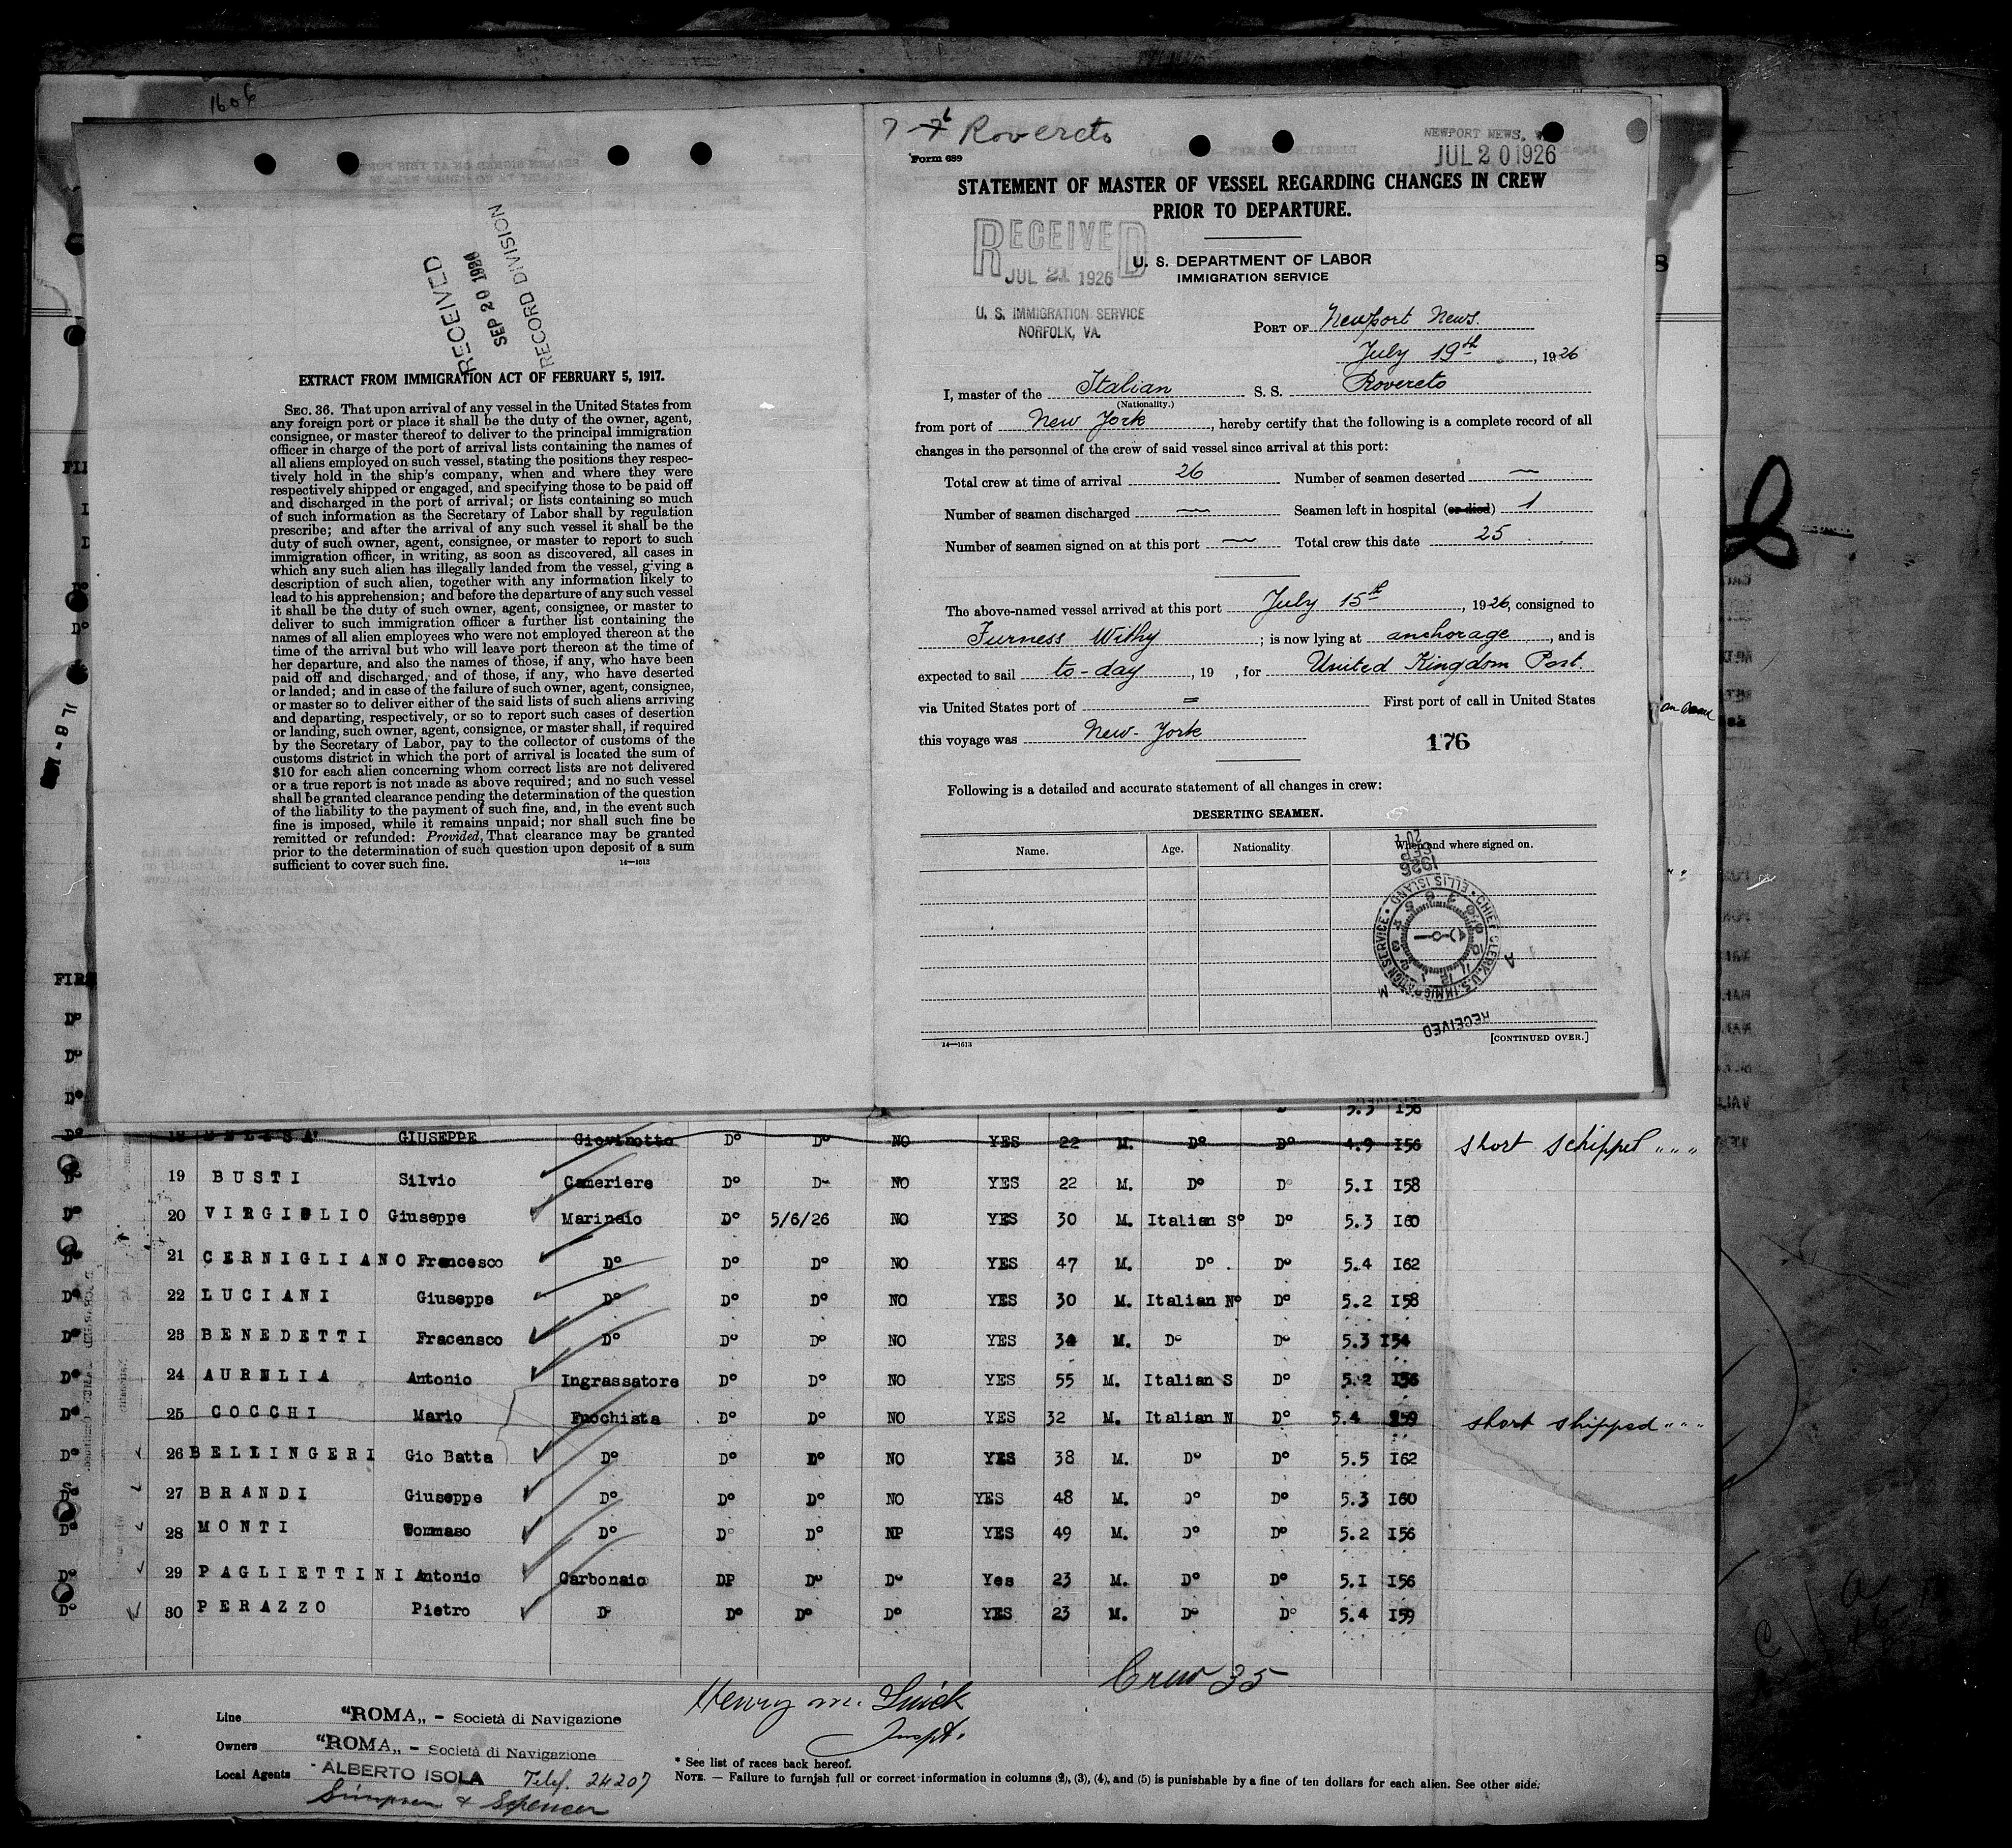 1606
RECEIVED
SEP 20 1926
RECORD DIVISION
EXTRACT FROM IMMIGRATION ACT OF FEBRUARY 5, 1917.
SEC. 36. That upon arrival of any vessel in the United States from
any foreign port or place it shall be the duty of the owner, agent,
consignee, or master thereof to deliver to the principal immigration
officer in charge of the port of arrival lists containing the names of
all aliens employed on such vessel, stating the positions they respec-
tively hold in the ship's company, when and where they were
respectively shipped or engaged, and specifying those to be paid off
and discharged in the port of arrival; or lists containing so much
of such information as the Secretary of Labor shall by regulation
prescribe; and after the arrival of any such vessel it shall be the
duty of such owner, agent, consignee, or master to report to such
immigration officer, in writing, as soon as discovered, all cases in
which any such alien has illegally landed from the vessel, giving a
description of such alien, together with any information likely to
lead to his apprehension; and before the departure of any such vessel
it shall be the duty of such owner, agent, consignee, or master to
deliver to such immigration officer a further list containing the
names of all alien employees who were not employed thereon at the
time of the arrival but who will leave port thereon at the time of
her departure, and also the names of those, if any, who have been
paid off and discharged, and of those, if any, who have deserted
or landed; and in case of the failure of such owner, agent, consignee,
or master so to deliver either of the said lists of such aliens arriving
and departing, respectively, or so to report such cases of desertion
or landing, such owner, agent, consignee, or master shall, if required
by the Secretary of Labor, pay to the collector of customs of the
customs district in which the port of arrival is located the sum of
$10 for each alien concerning whom correct lists are not delivered
or a true report is not made as above required; and no such vessel
shall be granted clearance pending the determination of the question
of the liability to the payment of such fine, and, in the event such
fine is imposed, while it remains unpaid; nor shall such fine be
remitted or refunded: Provided, That clearance may be granted
prior to the determination of such question upon deposit of a sum
sufficient to cover such fine.
14—1613
Rovereto
Form 689
NEWPORT NEWS,
JUL 20 1926
STATEMENT OF MASTER OF VESSEL REGARDING CHANGES IN CREW
PRIOR TO DEPARTURE.
RECEIVED
JUL 21 1926
U. S. IMMIGRATION SERVICE
NORFOLK, VA.
U. S. DEPARTMENT OF LABOR
IMMIGRATION SERVICE
PORT OF Newport News.
July 19th, 1926
I, master of the Italian S. S. Rovereto
(Nationality.)
from port of New York, hereby certify that the following is a complete record of all
changes in the personnel of the crew of said vessel since arrival at this port:
Total crew at time of arrival 26 Number of seamen deserted —
Number of seamen discharged — Seamen left in hospital (or died) 1
Number of seamen signed on at this port — Total crew this date 25
The above-named vessel arrived at this port July 15th, 1926, consigned to
Furness Withy; is now lying at anchorage, and is
expected to sail to-day, 19 , for United Kingdom Port.
via United States port of = First port of call in United States
this voyage was New-York
176
Following is a detailed and accurate statement of all changes in crew:
DESERTING SEAMEN.
Name. Age. Nationality When and where signed on.
SEP 1926
CHIEF CLERK, U.S. IMMIGRATION SERVICE • ELLIS ISLAND
RECEIVED
14—1613
[CONTINUED OVER.]
5.3 I58
GIUSEPPE Giovinotto Do Do NO YES 22 M. Do Do 4.9 I56 short schippet " " "
19 BUSTI Silvio Cameriere Do D- NO YES 22 M. Do Do 5.I I58
20 VIRGIGLIO Giuseppe Marinaio Do 5/6/26 NO YES 30 M. Italian So Do 5.3 I60
21 CERNIGLIANO Francesco Do Do Do NO YES 47 M. Do Do 5.4 I62
22 LUCIANI Giuseppe Do Do Do NO YES 30 M. Italian No Do 5.2 I58
23 BENEDETTI Fracensco Do Do Do NO YES 34 M. Do Do 5.3 I54
24 AURELIA Antonio Ingrassatore Do Do NO YES 55 M. Italian S Do 5.2 I56
25 COCCHI Mario Fuochista Do Do NO YES 32 M. Italian N Do 5.4 I59 short shipped " " "
26 BELLINGERI Gio Batta Do Do Do NO YES 38 M. Do Do 5.5 I62
27 BRANDI Giuseppe Do Do Do NO YES 48 M. Do Do 5.3 I60
28 MONTI Tommaso Do Do Do NP YES 49 M. Do Do 5.2 I56
29 PAGLIETTINI Antonio Carbonaio DP Do Do Yes 23 M. Do Do 5.I I56
30 PERAZZO Pietro D- Do Do Do YES 23 M. Do Do 5.4 I59
Crew 35
Henry M.
Inspt.
Line "ROMA„ - Società di Navigazione
Owners "ROMA„ - Società di Navigazione
Local Agents ALBERTO ISOLA Telef. 24207
Simpson & Spencer
* See list of races back hereof.
NOTE. — Failure to furnish full or correct information in columns (2), (3), (4), and (5) is punishable by a fine of ten dollars for each alien. See other side.